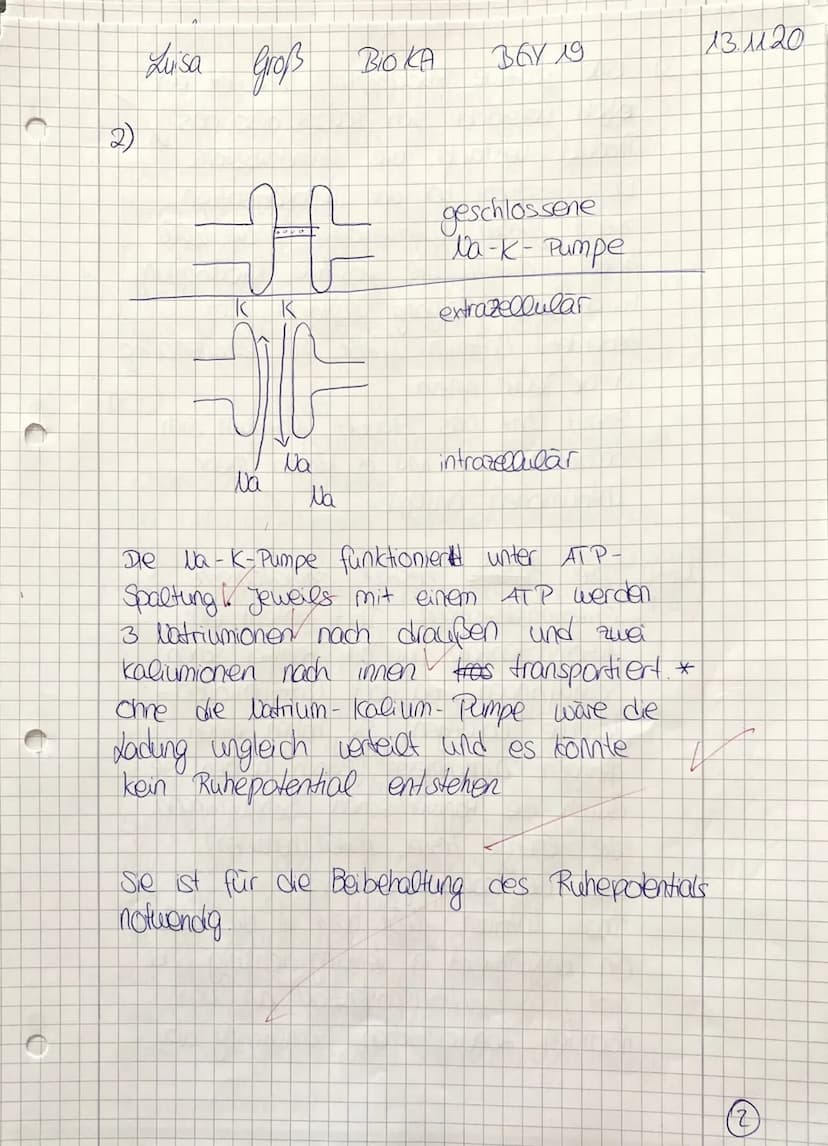 Luisa Groß BIOKA BGY 19 13.11.20
2)
geschlossene
Na-K-Pumpe
K K extrazellulär
intrazellulär
Na Na
Na
Die Na-K-Pumpe funktioniert unter ATP-
Spaltung. Jeweils mit einem ATP werden
3 Natriumionen nach draußen und zwei
Kaliumionen nach innen transportiert. *
Ohne die Natrium-Kalium-Pumpe wäre die
Ladung ungleich verteilt und es könnte
kein Ruhepotential entstehen
Sie ist für die Beibehaltung des Ruhepotentials
notwendig.
2